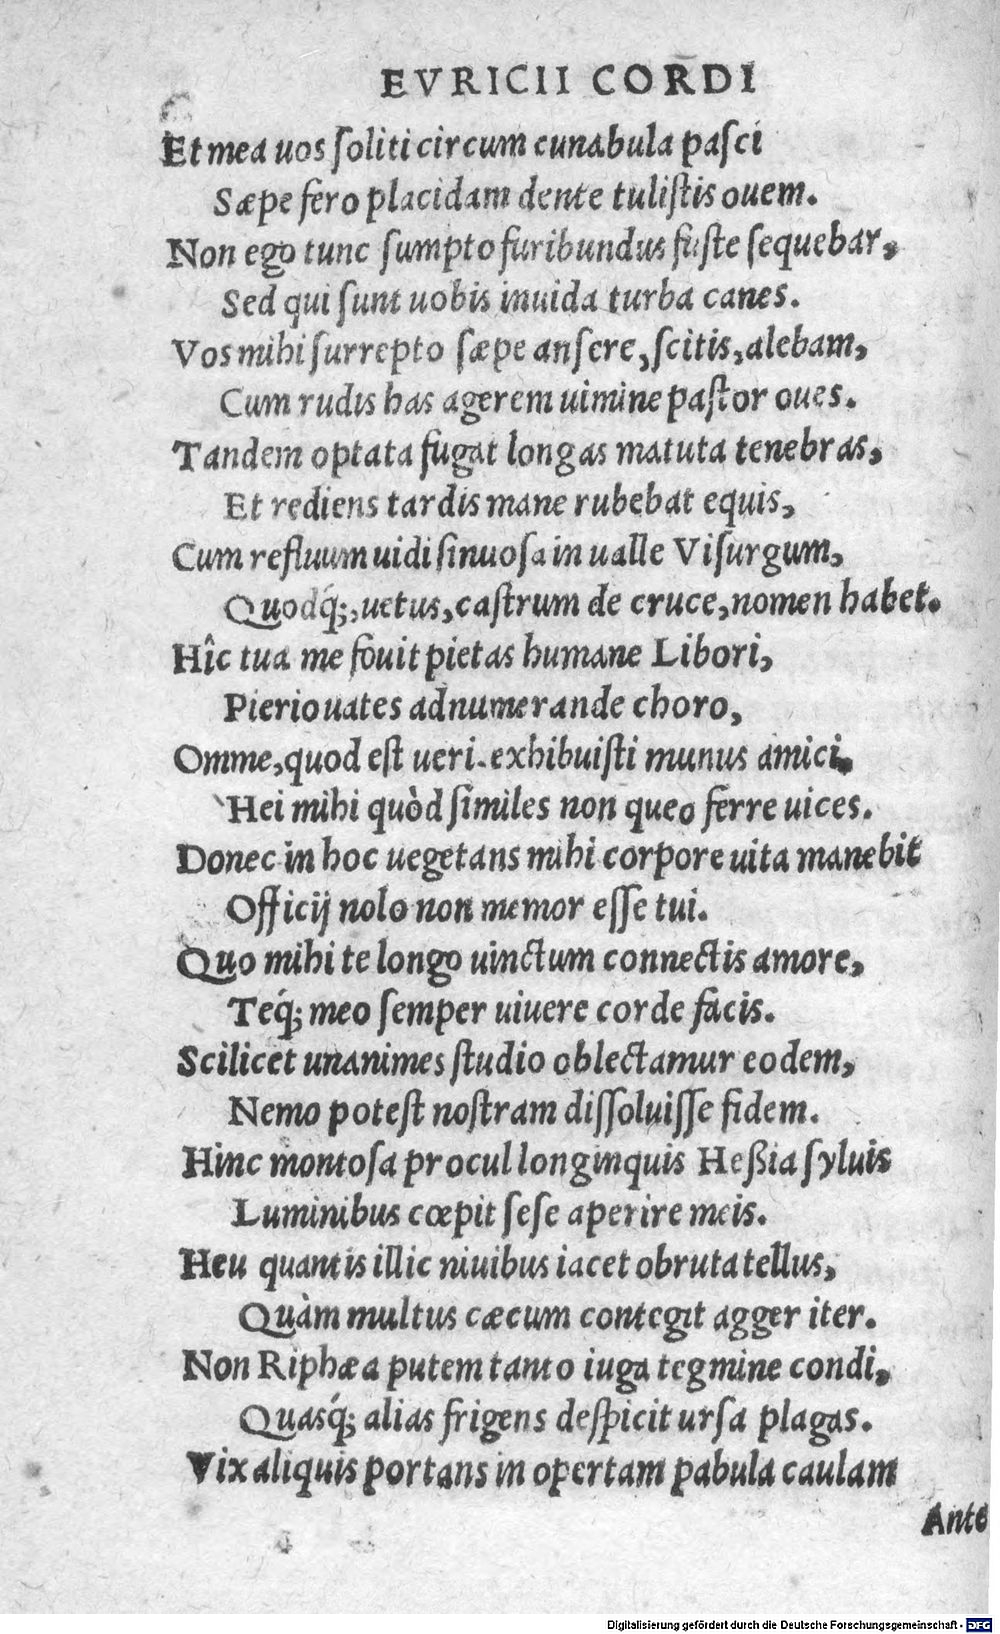 EVRICII CORDI
Et mea uos ſoliti circum cunabula paſci
Sæpe fero placidam dente tuliſtis ouem.
Non ego tunc ſumpto furibundus fuſte ſequebar,
Sed qui ſunt uobis inuida turba canes.
Vos mihi ſurrepto ſæpe anſere, ſcitis, alebam,
Cum rudis has agerem uimine paſtor oues.
Tandem optata fugat longas matuta tenebras,
Et rediens tardis mane rubebat equis,
Cum refluum uidi ſinuoſa in ualle Viſurgum,
Quodq́;, uetus, caſtrum de cruce, nomen habet.
Hîc tua me fouit pietas humane Libori,
Pierio uates adnumerande choro,
Omme, quod eſt ueri. exhibuiſti munus amici.
Hei mihi quòd ſimiles non queo ferre uices.
Donec in hoc uegetans mihi corpore uita manebit
Officij nolo non memor eſſe tui.
Quo mihi te longo uinctum connectis amore,
Teq́; meo ſemper uiuere corde facis.
Scilicet unanimes ſtudio oblectamur eodem,
Nemo poteſt noſtram diſſoluiſſe fidem.
Hinc montoſa procul longinquis Heßia ſyluis
Luminibus cœpit ſeſe aperire meis.
Heu quantis illic niuibus iacet obruta tellus,
Quàm multus cæcum contegit agger iter.
Non Riphæa putem tanto iuga tegmine condi,
Quasq́; alias frigens deſpicit urſa plagas.
Vix aliquis portans in opertam pabula caulam
Ante
Digitalisierung gefördert durch die Deutsche Forschungsgemeinschaft - DFG